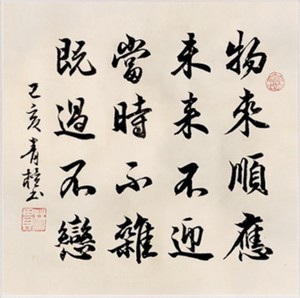 物來順應
未来不迎
當時不雜
既過不戀
己亥青桂书